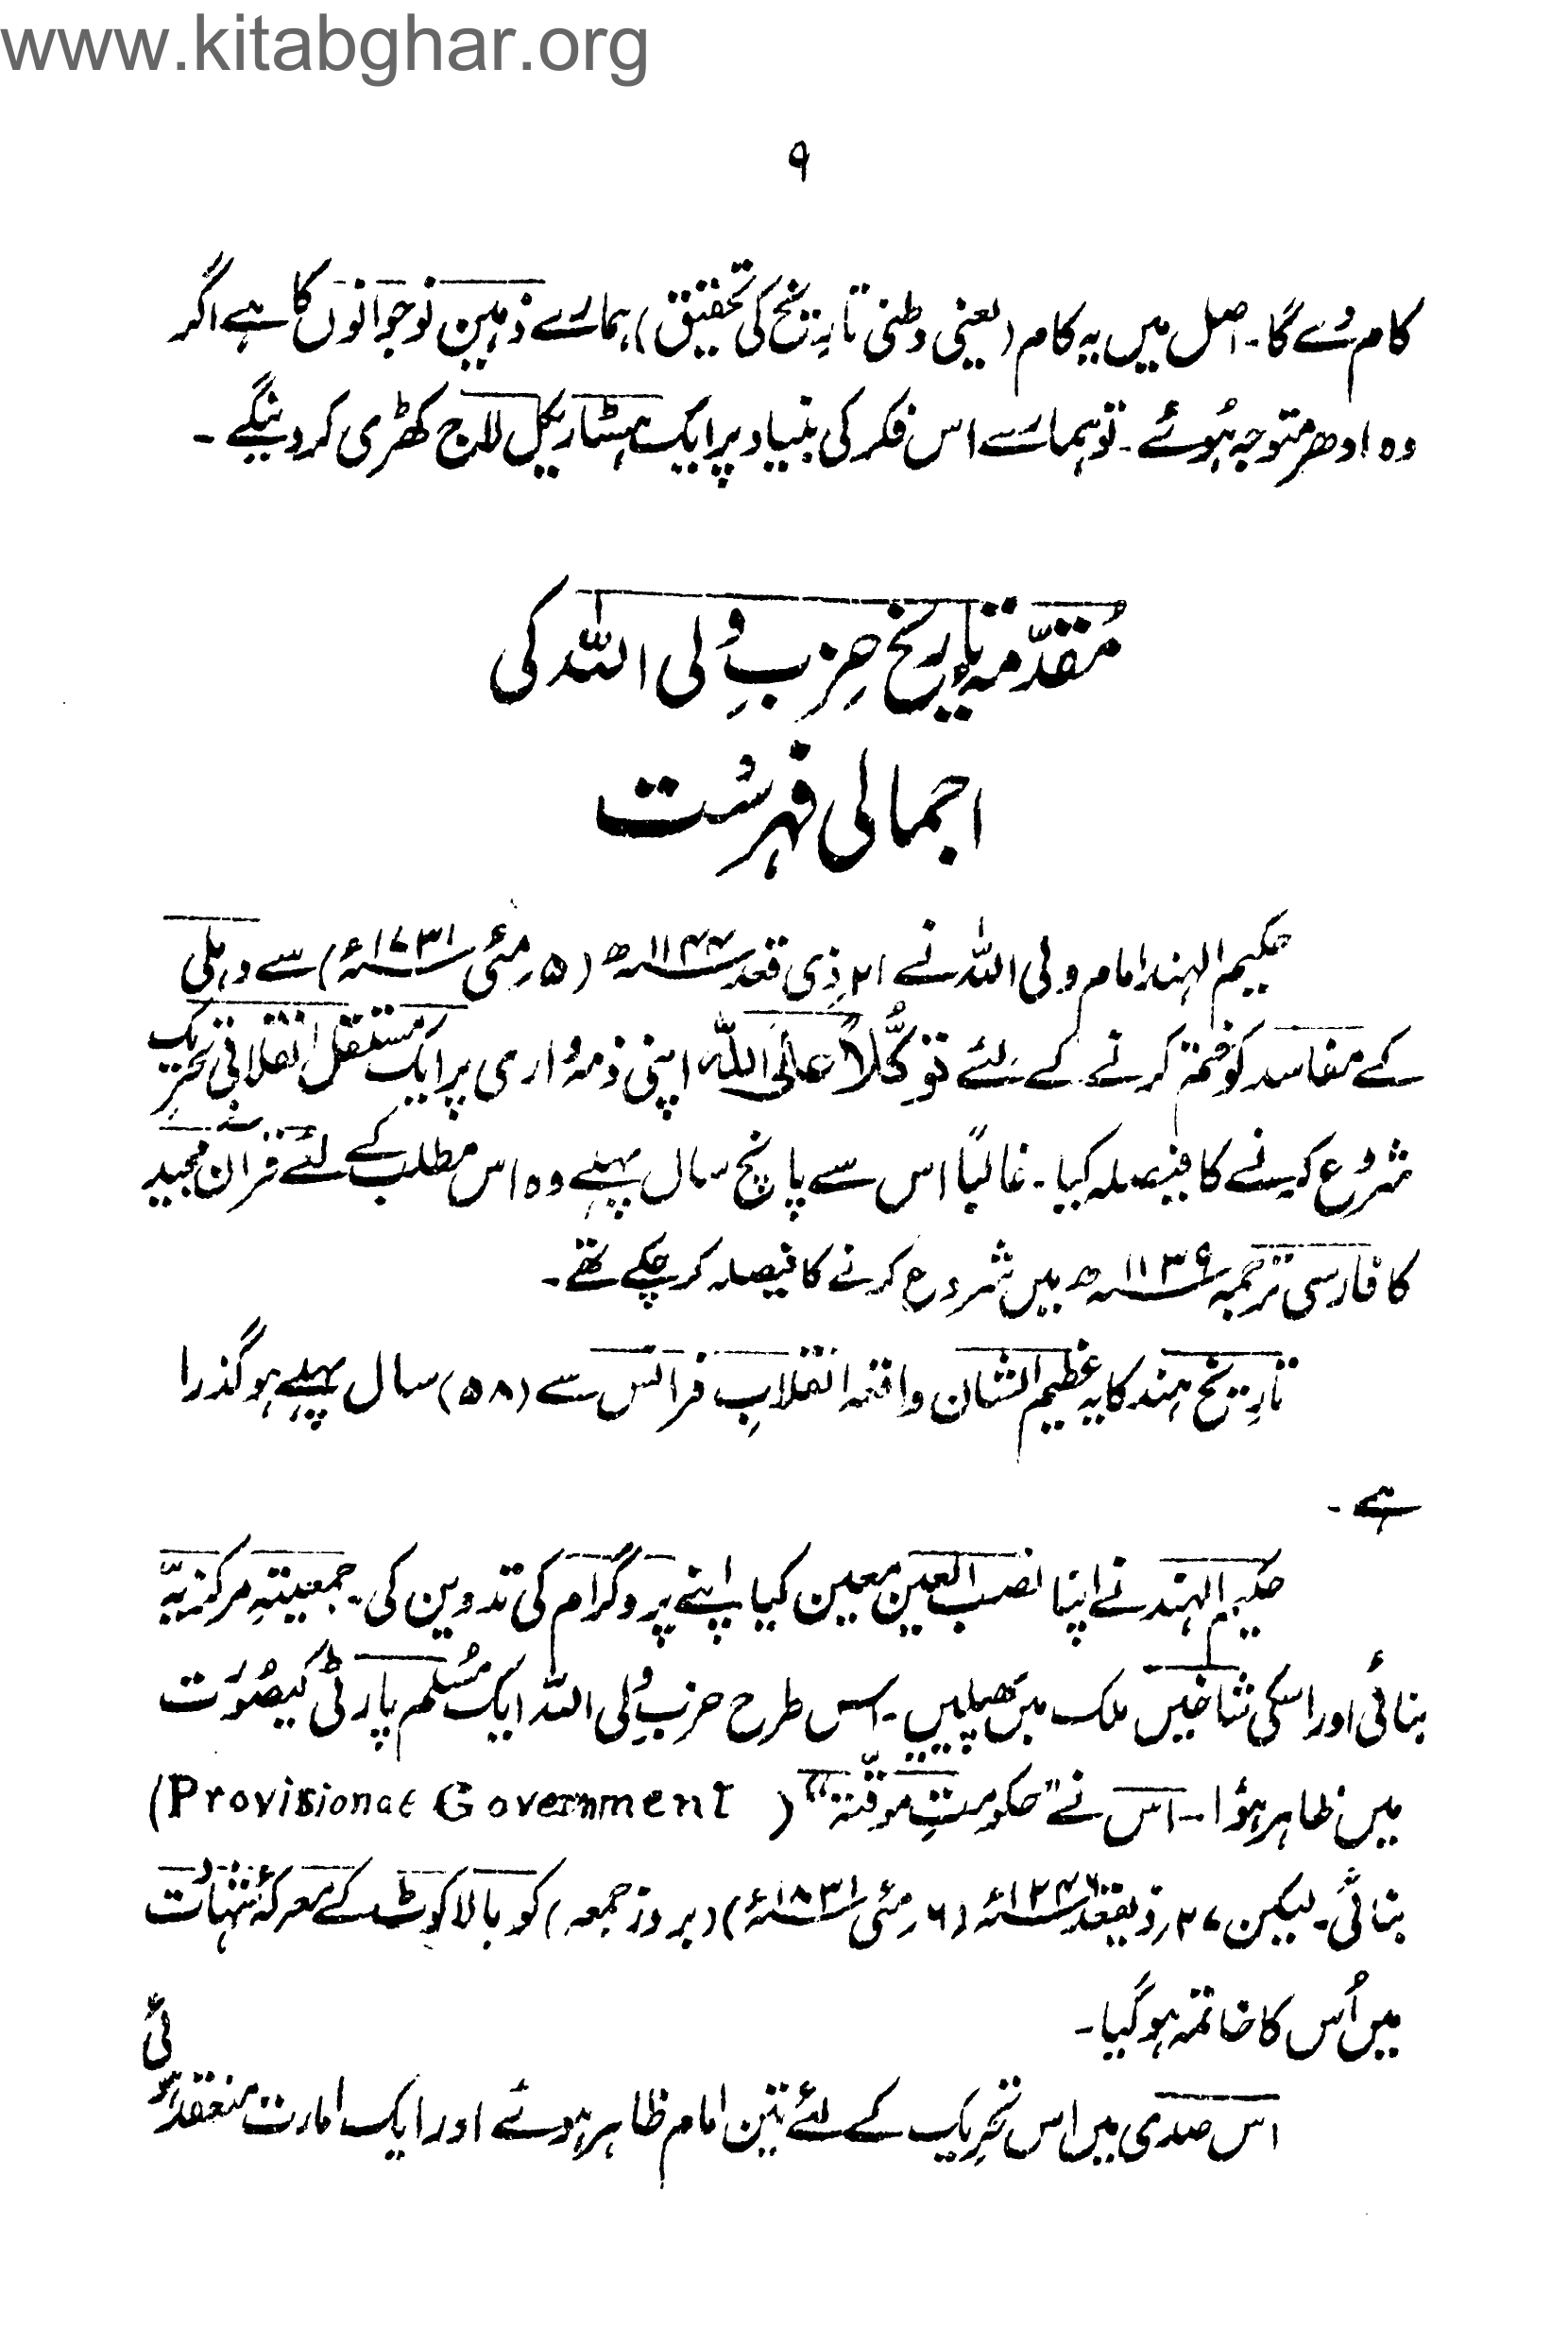 www.kitabghar.org
۹
کام دے گا۔ اصل میں یہ کام (یعنی وطنی تاریخ کی تحقیق) ہمارے ذہین نوجوانوں کا ہے اگر
وہ ادھر متوجہ ہوئے۔ تو ہمارے اس فکر کی بنیاد پر ایک ہسٹاریکل لاج کھڑی کر دینگے۔
مُقدّمہ تاریخ حِزبِ ولی اللہ کی
اجمالی فہرست
حکیم الہند امام ولی اللہ نے ۲۱ ذی قعد ۱۱۴۴ھ (۵ رمئی ۱۷۳۱ء) سے دہلی
کے مفاسد کو ختم کرنے کے لئے توکُّلاً علی اللہ اپنی ذمہ واری پر ایک مستقل انقلابی تحریک
شروع کرنے کا فیصلہ کیا۔ غالباً اس سے پانچ سال پہلے وہ اس مطلب کے لئے قرآن مجید
کا فارسی ترجمہ ۱۱۳۹ھ میں شروع کرنے کا فیصلہ کر چکے تھے۔
تاریخ ہند کا یہ عظیم الشان واقعہ انقلابِ فرانس سے (۵۸) سال پہلے ہو گذرا
ہے۔
حکیم الہند نے اپنا نصب العین معین کیا اپنے پروگرام کی تدوین کی۔ جمعیتہِ مرکزیہّ
بنائی اور اسکی شاخیں ملک میں پھیلیں۔ اس طرح حزبِ ولی اللہ ایک مُسلم پارٹی کیصُورت
میں ظاہر ہؤا۔ اس نے "حکومتِ موقّتہ" (Provisional Government)
بنائی۔ لیکن ۲۷ رذیقعد ۱۲۴۶ء (۶ رمئی ۱۸۳۱ء) (بروز جمعہ) کو بالاکوٹ کے معرکۂ شہادت
میں اُس کا خاتمہ ہو گیا۔
اس صدی میں اس تحریک کے لئے تین امام ظاہر ہوئے اور ایک امارت منعقد ہوئی